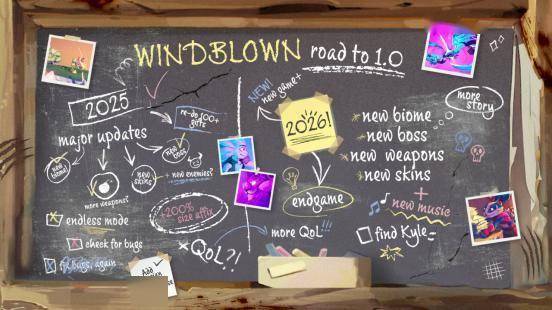 WINDBLOWN road to 1.0
2025
major updates
re-do 100+
gifts
new boss
new
skins
+ new enemies?
more weapons?
endless mode
check for bugs
fix bugs, again
+200%
size affix
QoL?!
Add
NEW!
new game+
2026!
new biome
new boss
new weapons
new skins
+
new music
more
story
endgame
more QoL!!!
find Kyle